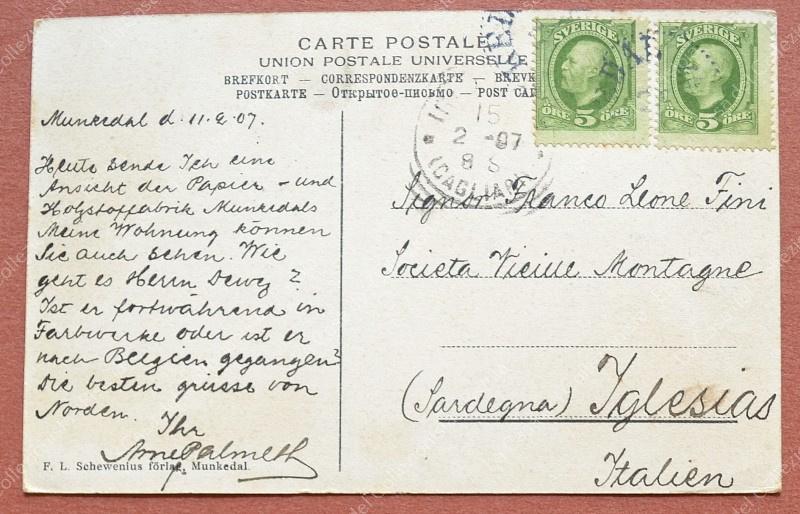 CARTE POSTALE
UNION POSTALE UNIVERSELLE
BREFKORT — CORRESPONDENZKARTE — BREVK
POSTKARTE — Открытое-письмо — POST CA
SVERIGE
ÖRE 5 ÖRE
SVERIGE
ÖRE 5 ÖRE
15
2 -07
8 S
(CAGLIARI)
Munkedal d. 11.2.07.
Heute sende Ich eine
Ansicht der Papier - und
Holzstoffabrik Munkedals
Meine Wohnung können
Sie auch sehen. Wie
geht es Herrn Dewez?
Ist er fortwährend in
Farbwerke oder ist er
nach Belgien gegangen?
Die besten grüsse von
Norden.
Ihr
Arne
F. L. Schewenius förlag, Munkedal.
Signor Franco Leone Fini
Societa Vieille Montagne
(Sardegna) Iglesias
Italien